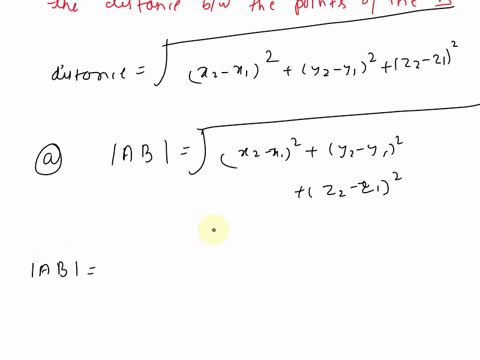 the distance b/w the points of the
distance = √(x₂-x₁)² + (y₂-y₁)² + (z₂-z₁)²
ⓐ |AB| = √(x₂-x₁)² + (y₂-y₁)²
+ (z₂-z₁)²
|AB| =